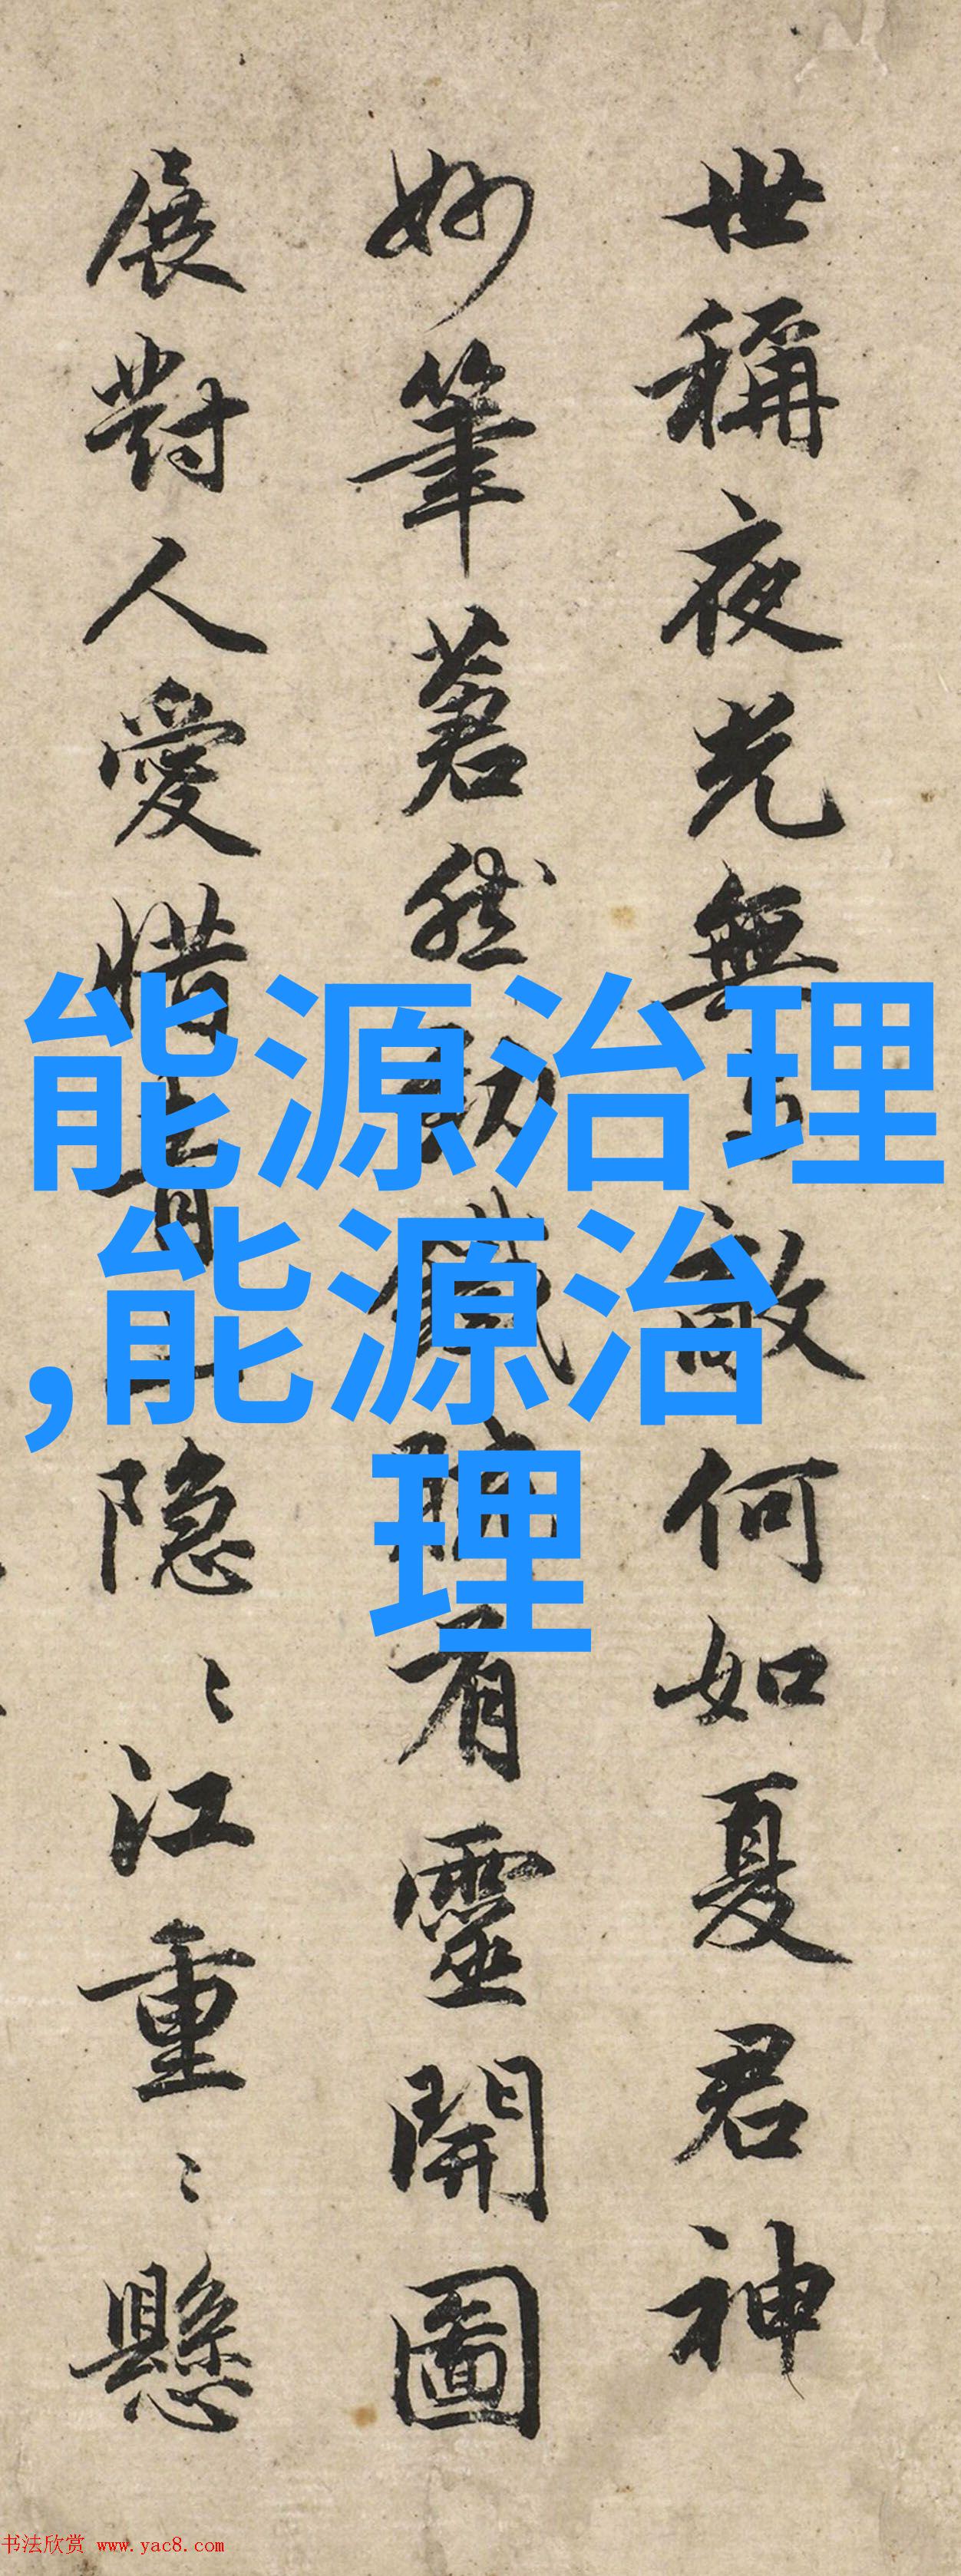 世稱夜光無 敵何如夏君神
妙筆著然 鐵 有靈開圖
展對人愛惜 隐〻江重〻懸
能源治理
,能源治
理
书法欣赏 www.yac8.com